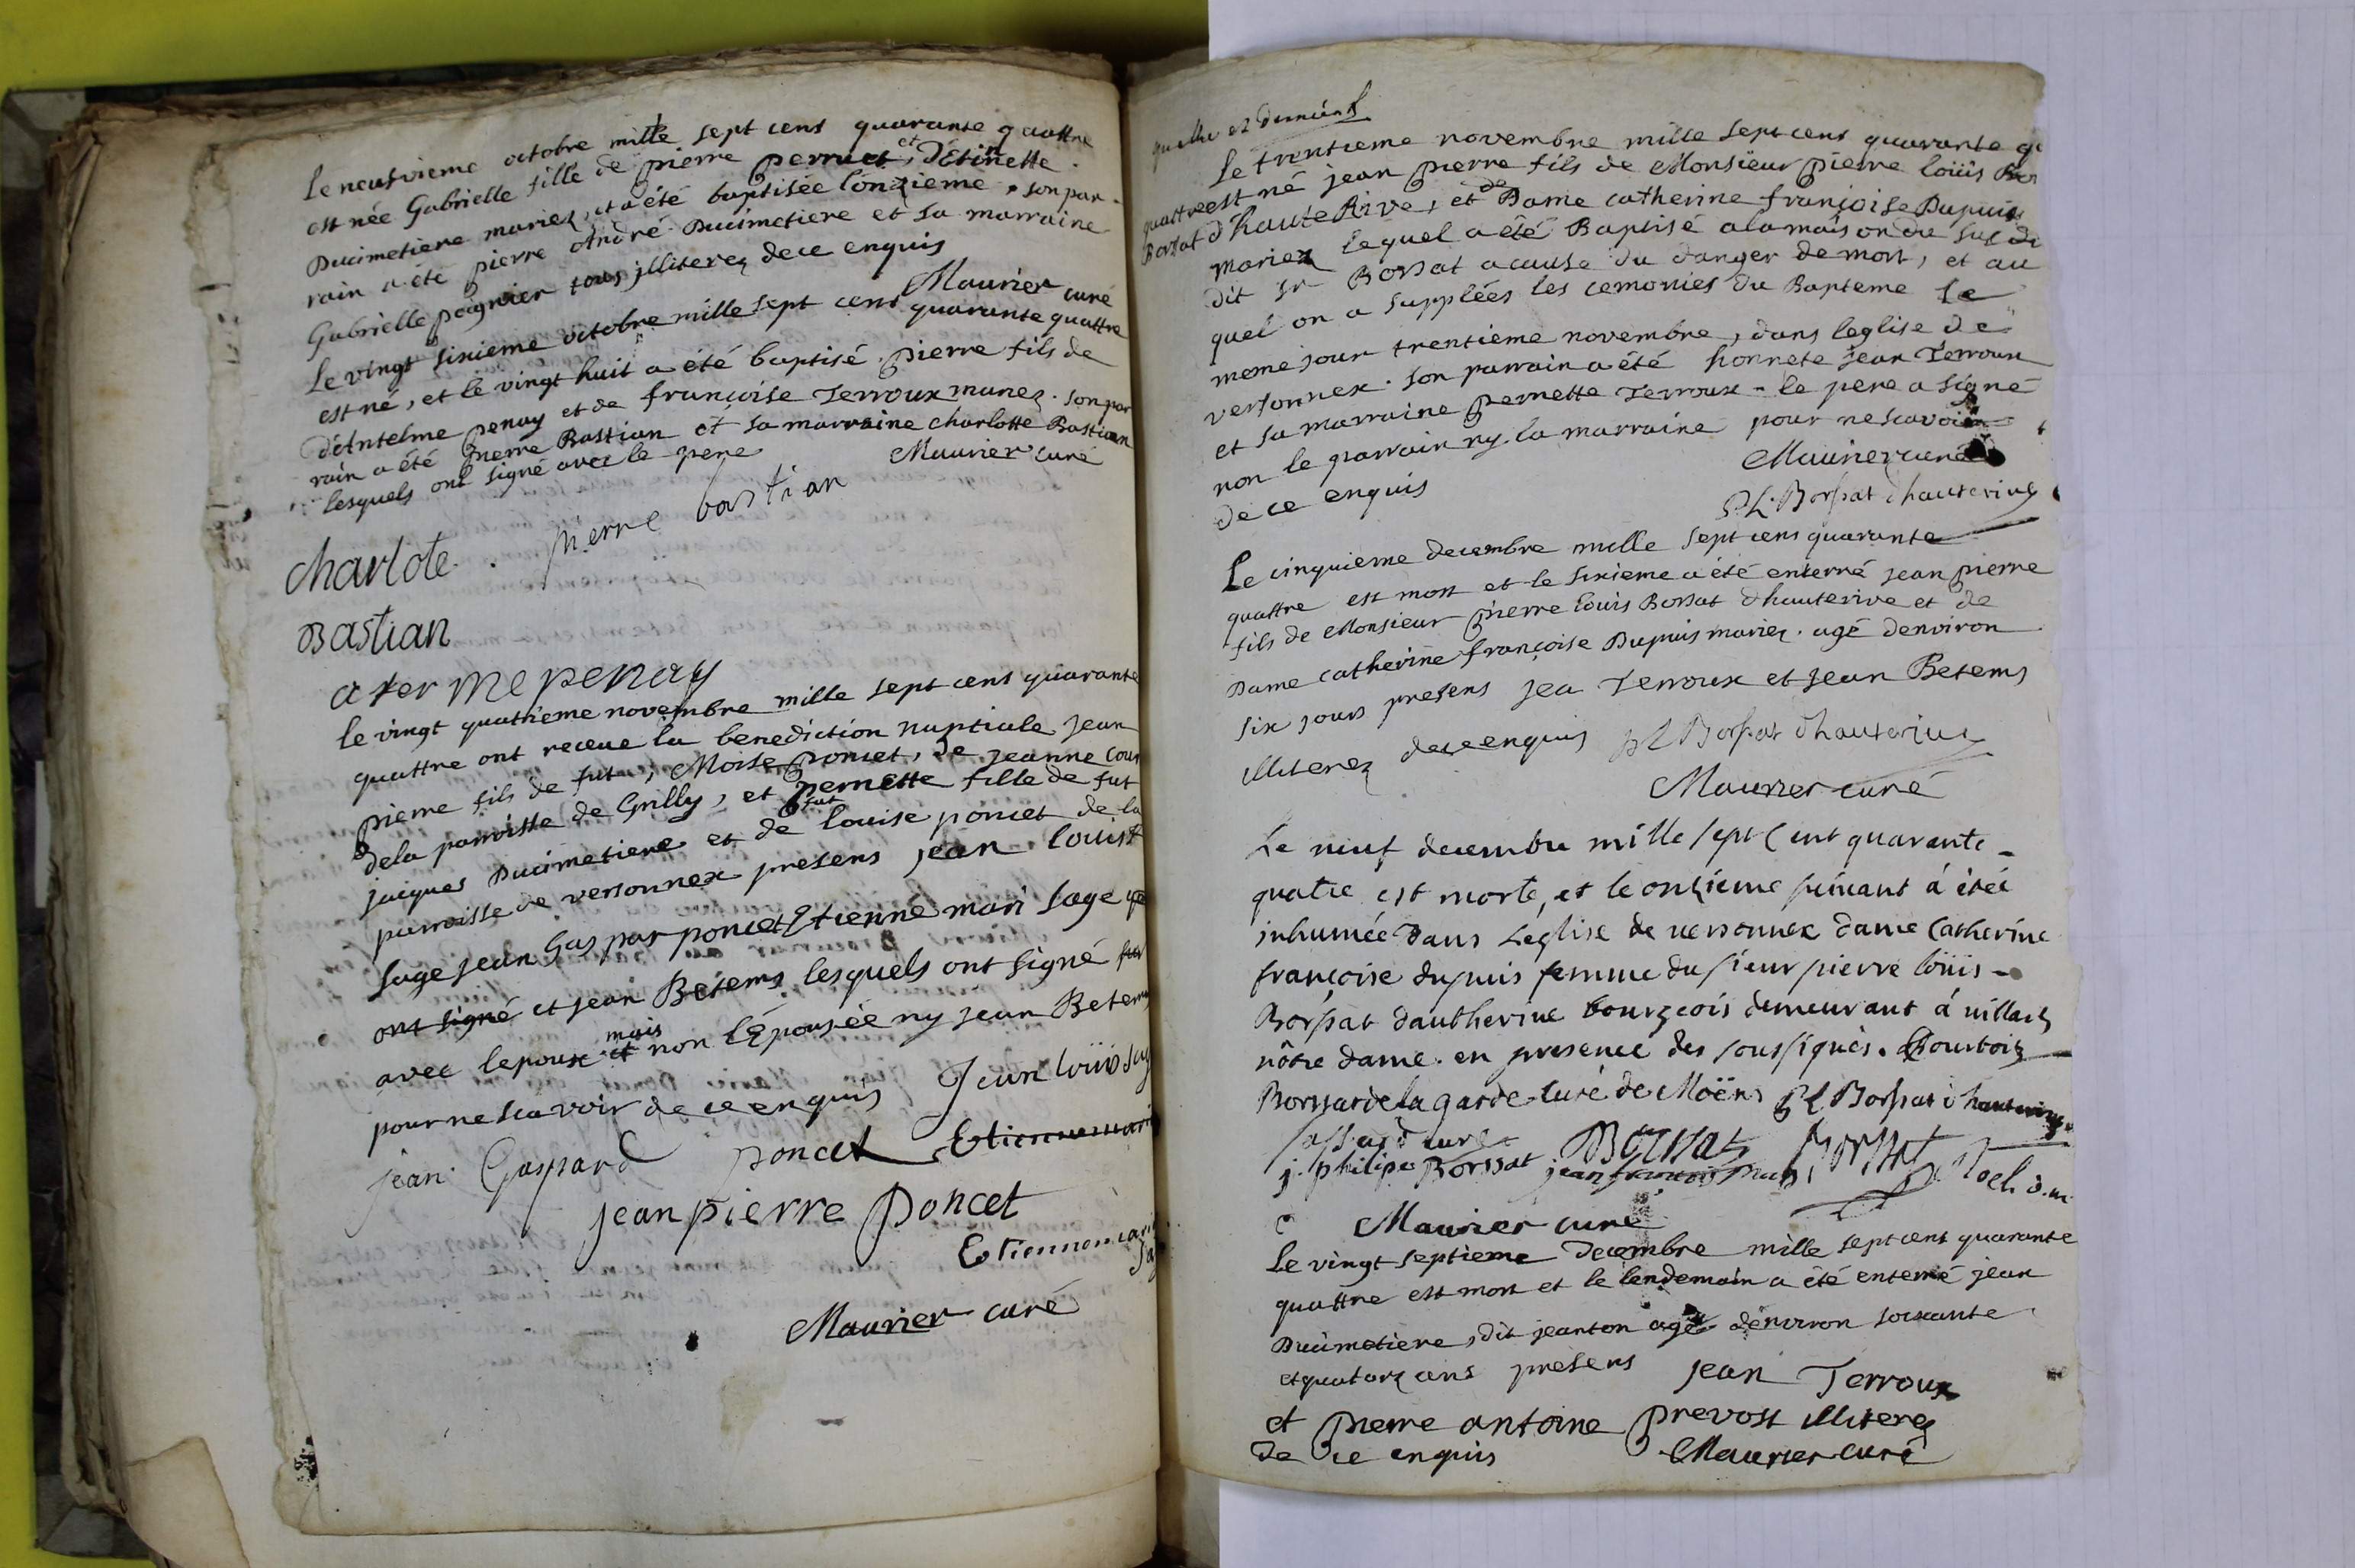 Le neufvieme octobre mille sept cens quarante quattre
est née Gabrielle fille de pierre perruet et d'Etinette
Ducimetiere mariez, et a été baptisée lonzieme. son par-
rain a été pierre André Ducimetiere et sa marraine
Gabrielle peignier tous jlliterez de ce enquis
Maurier curé
Le vingt sixieme octobre mille sept cens quarante quattre
est né, et le vingt huit a été baptisé pierre fils de
d'Antelme penay et de françoise Terroux mariez. son par
rain a été pierre Bastian et sa marraine charlotte Bastian
lesquels ont signé avec le pere
Maurier curé
charlote pierre bastian
Bastian
penay
le vingt quatrieme novembre mille sept cens quarante
quattre ont receue la benediction nuptiale jean
pierre fils de fut, Moise poncet, de jeanne
de la parroisse de Grilly, et pernette fille de fut
jacques Ducimetiere et de fut louise poncet de la
parroisse de versonnex presens jean louis
sage jean Gaspar poncet Etienne mari sage
ont signé et jean Betems lesquels ont signé
avec lepoux et mais non lEpousée ny jean Betems
pour ne scavoir de ce enquis Jean loüis
jean Gaspard poncet Etienne
jean pierre Poncet
Etienne
Maurier curé
Le trentieme novembre mille sept cens quarante
quattre est né jean pierre fils de Monsieur pierre loüis
Borsat d'hauteRive, et de Dame catherine françoise Dupuis
mariez lequel a été Baptisé a la maison du sus
dit sr Borsat a cause du danger de mort, et au
quel on a supplées les cemonies du Bapteme le
meme jour trentieme novembre, dans leglise de
versonnex. son parrain a été honnete jean Terroux
et sa marraine pernette Terroux - le pere a signé
non le parrain ny la marraine pour ne scavoir
de ce enquis
Maurier curé
P L Borssat dhauterive
Le cinquieme decembre mille sept cens quarante
quattre est mort et le sixieme a été enterré jean pierre
fils de Monsieur pierre louis Borsat dhauterive et de
Dame catherine françoise Dupuis mariez. agé denviron
six jours presens jea Terroux et jean Betems
illiterez de ce enquis p L Borssat dhauterive
Maurier curé
Le neuf decembre mille sept cent quarante
quatre est morte, et le onzieme suivant á étée
inhumée dans Léglise de versonnex dame Catherine
françoise dupuis femme du sieur pierre loüis
Borssat dautherive bourgeois demeurant á villard
nôtre dame. en presence des soussignés.
Borssat de la garde curé de Moëns P L Borssat dhauterive
j. philipe Borssat Borssat jean françois Borssat
Maurier curé
Le vingt septieme decembre mille sept cent quarante
quattre est mort et le lendemain a été enterré jean
Ducimetiere, dit jeanton agé denviron soixante
et quatorz ans presens jean Terroux
et pierre antoine prevost illiterez
de ce enquis Maurier curé